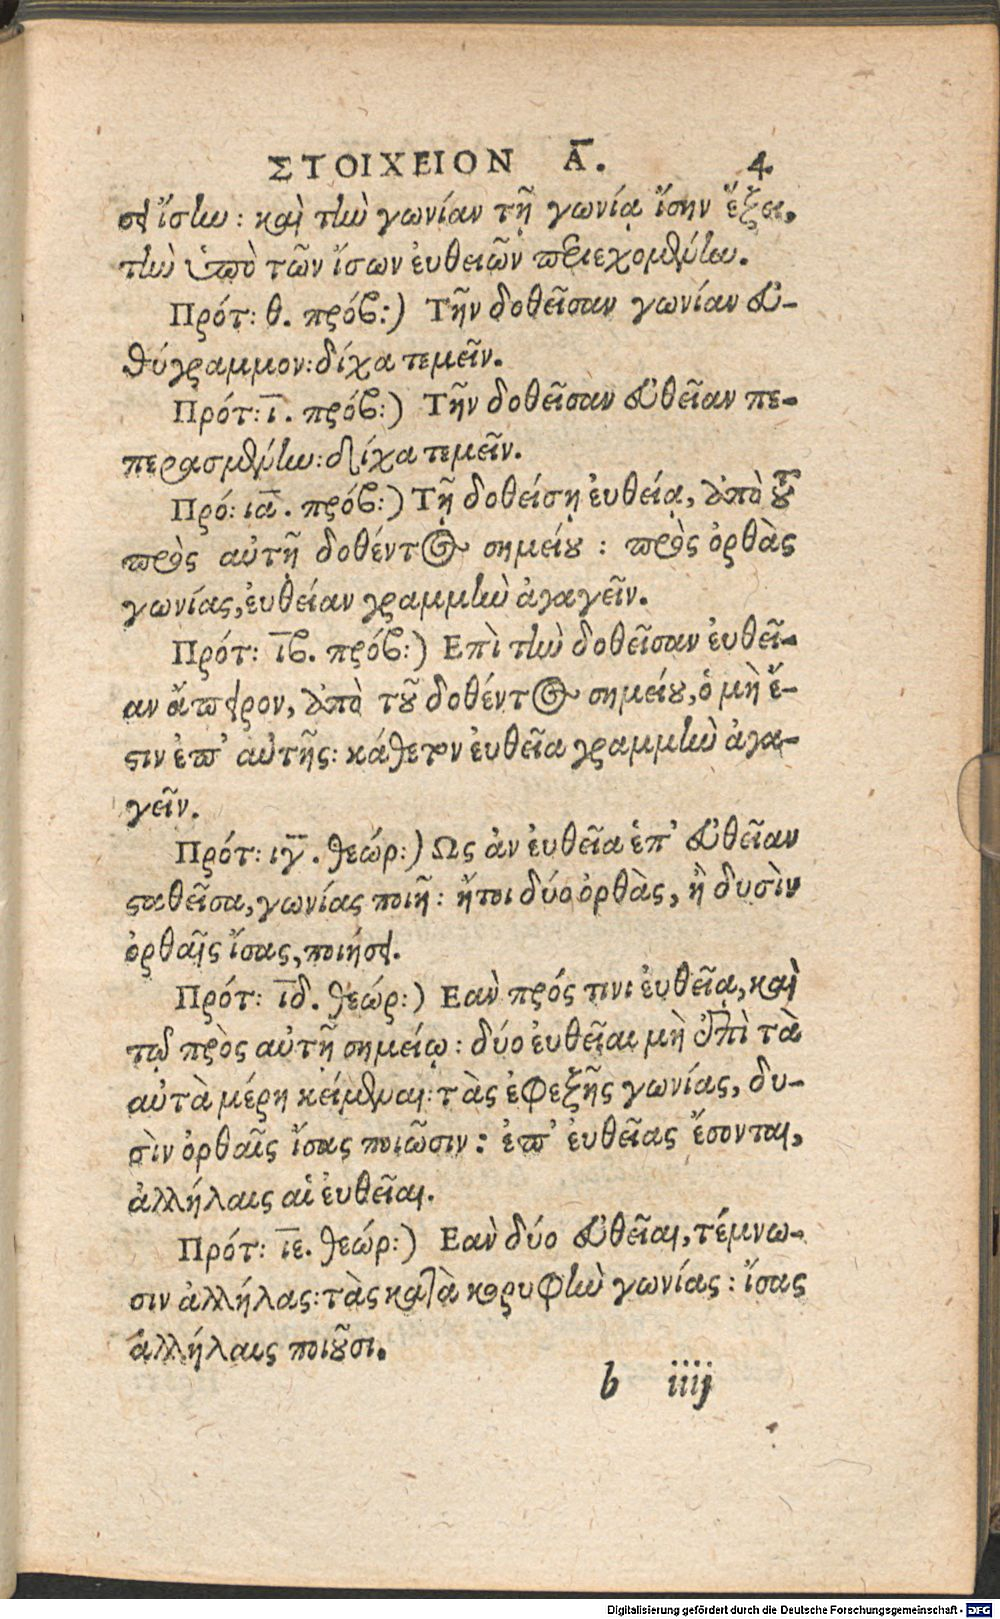 ΣΤΟΙΧΕΙΟΝ Α. 4.
σει ἴσην: καὶ τὴν γωνίαν τῇ γωνίᾳ ἴσην ἕξει,
τὴν ὑπὸ τῶν ἴσων ἐυθειῶν περιεχομένην.
Πρότ: θ. πρόβ:) Τὴν δοθεῖσαν γωνίαν εὐ-
θύγραμμον: δίχα τεμεῖν.
Πρότ: ι. πρόβ:) Τὴν δοθεῖσαν εὐθεῖαν πε-
περασμένην: δίχα τεμεῖν.
Πρό: ια. πρόβ:) Τῇ δοθείσῃ ἐυθείᾳ, ἀπὸ τοῦ
πρὸς αὐτῇ δοθέντος σημείου: πρὸς ὀρθὰς
γωνίας, ἐυθείαν γραμμὴν ἀγαγεῖν.
Πρότ: ιβ. πρόβ:) Επὶ τὴν δοθεῖσαν ἐυθεῖ-
αν ἄπειρον, ἀπὸ τοῦ δοθέντος σημείου, ὁ μὴ ἔ-
στιν ἐπ' αὐτῆς: κάθετον ἐυθεῖα γραμμὴν ἀγα-
γεῖν.
Πρότ: ιγ. θεώρ:) Ως ἀν ἐυθεῖα ἐπ' εὐθεῖαν
σταθεῖσα, γωνίας ποιῇ: ἤτοι δύο ὀρθὰς, ἢ δυσὶν
ὀρθαῖς ἴσας, ποιήσει.
Πρότ: ιδ. θεώρ:) Εαν πρός τινι ἐυθεῖᾳ, καὶ
τῷ πρὸς αὐτῇ σημείῳ: δύο ἐυθεῖαι μὴ ἐπὶ τὰ
αὐτὰ μέρη κείμεναι: τὰς ἐφεξῆς γωνίας, δυ-
σὶν ὀρθαῖς ἴσας ποιῶσιν: ἐπ' ἐυθείας ἔσονται,
ἀλλήλαις αἱ ἐυθεῖαι.
Πρότ: ιε. θεώρ:) Εαν δύο εὐθεῖαι, τέμνω-
σιν ἀλλήλας: τὰς κατὰ κορυφὴν γωνίας: ἴσας
ἀλλήλαις ποιοῦσι.
b iiij
Digitalisierung gefördert durch die Deutsche Forschungsgemeinschaft - DFG